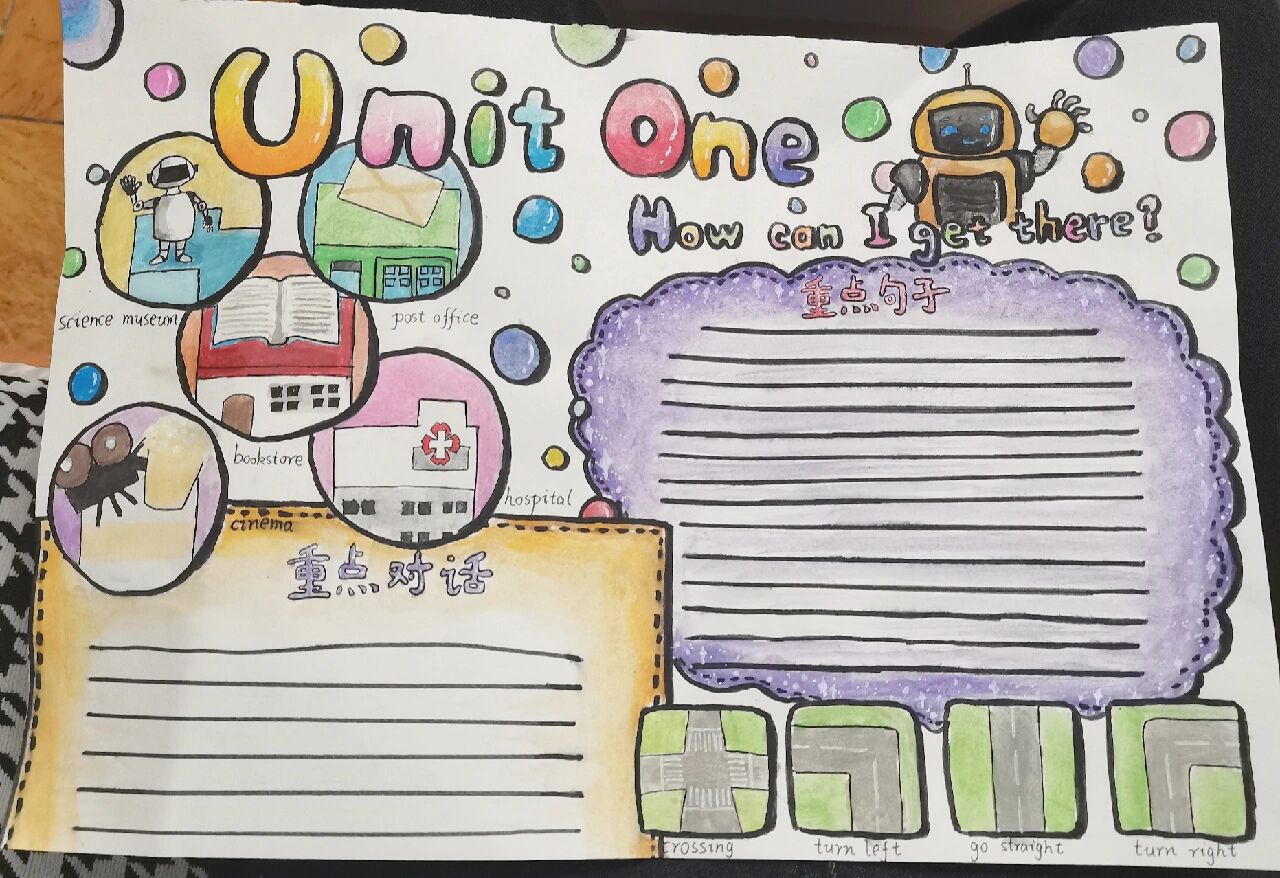 Unit One
How can I get there?
science museum
post office
bookstore
hospital
cinema
重点句子
重点对话
crossing
turn left
go straight
turn right